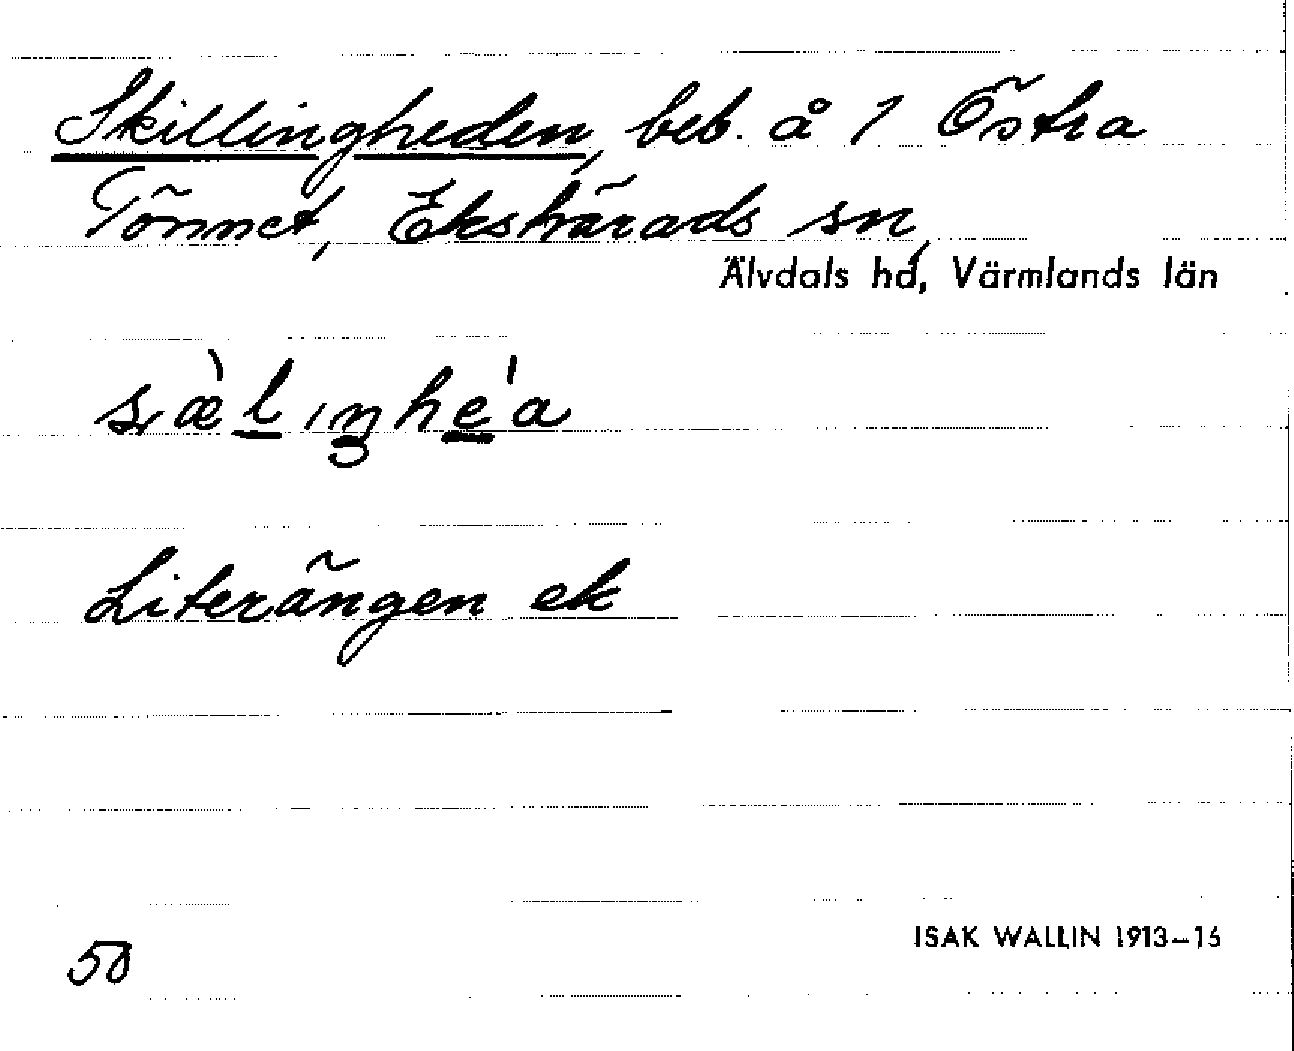 Skillingheden, beb. å 1 Östra
Tönnet, Ekshärads sn,
Älvdals hd, Värmlands län
Literängen ek
50
ISAK WALLIN 1913–16